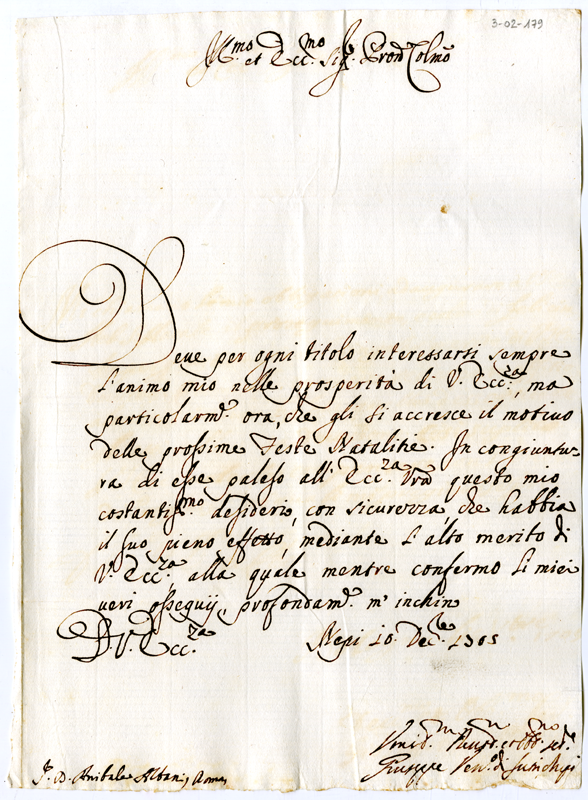 3-02-179
Ill.mo et Ecc.mo Sig.r Pron Colmo
Deve per ogni titolo interessarsi sempre
l'animo mio nelle prosperità di V. Ecc.za, ma
particolarm.e ora, che gli si accresce il motivo
delle prossime Feste Natalitie. In congiuntu-
ra di esse paleso all' Ecc.za Vra questo mio
costantiss.mo desiderio, con sicurezza, che habbia
il suo pieno effetto, mediante l'alto merito di
V. Ecc.za alla quale mentre confermo li miei
veri ossequij, profondam.e m'inchino
D. V. Ecc.za
Nepi 20. Dec.bre 1705
Giuseppe Ven.o di
D. Anibale Albani Roma